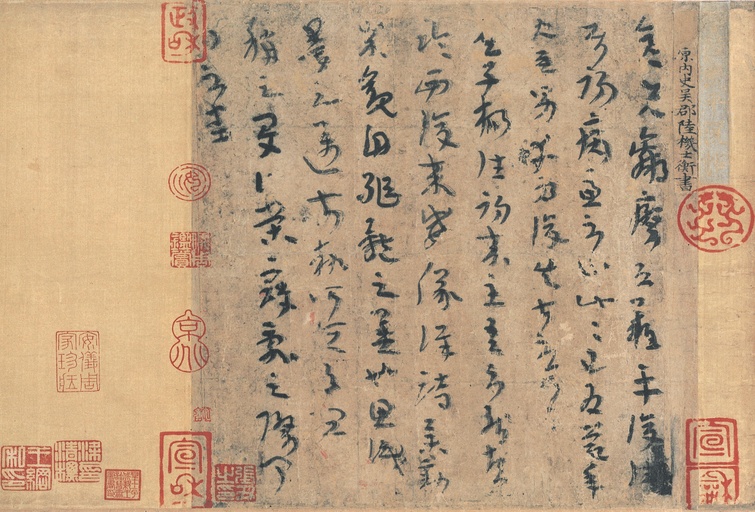 晉內史吳郡陸機士衡書
彦先羸瘵恐難平復往屬
初病慮不止此此已為慶承
使唯男幸為復失前憂耳
吳子楊往初來主吾不能盡
臨西復來威儀詳跱舉動
成觀自軀體之美也思識
量之邁前執所恒有宜
稱之夏伯榮寇亂之際聞
問不悉
政和
宣和
宣和
安儀周家珍藏